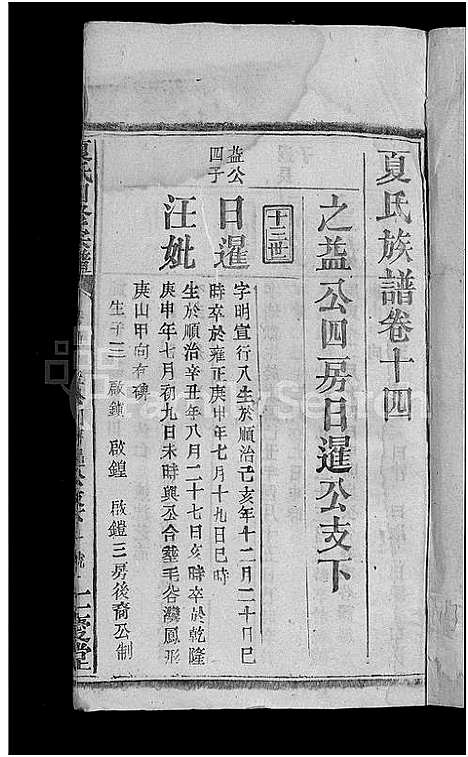 夏氏族譜卷十四
之益公四房日暹公支下
十三世
益公四子
日暹
字明宣行八生於順治己亥年十二月二十日巳
時卒於雍正庚申年七月十九日巳時
汪妣
生於順治辛丑年八月二十七日亥時卒於乾隆
庚申年七月初九日未時與公合塟毛谷灣鳳形
庚山甲向有碑
生子三 啟鎖 啟鍠 啟鎧三房後裔公制